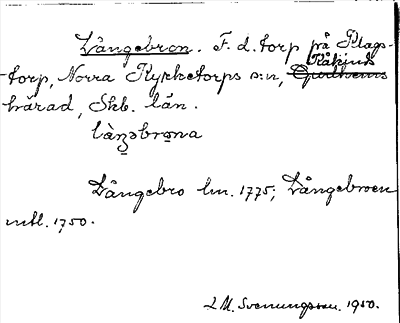 Långebron. F. d. torp på Klags-
torp, Norra Kyrketorps s:n, Kåkinds
härad, Skb. län.
làŋ̠əbrona
Långebro hm. 1775; Långebroen
mtl. 1750.
L M. Svenungsson. 1950.